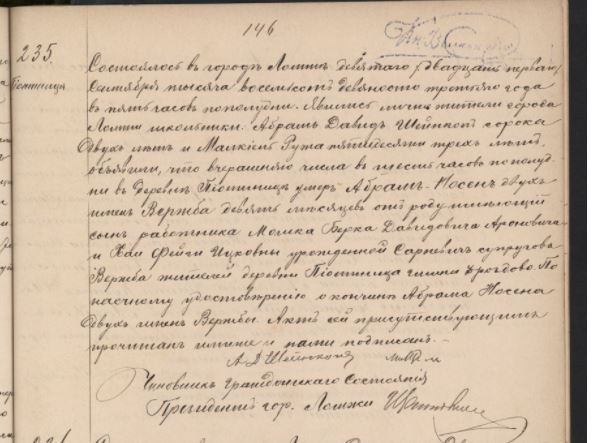 146
235.
Піотница
Состоялось въ городѣ Ломжѣ девятаго /двадцать перваго/
Сентября тысяча восемьсотъ девяносто третьяго года
въ пять часовъ пополудни. Явились лично жители города
Ломжи школьники: Абрамъ Давидъ Шейнкопъ сорока
двухъ лѣтъ и Рута пятидесяти трехъ лѣтъ,
объявили, что вчерашняго числа въ шесть часовъ пополуд-
ни въ деревнѣ Піотница умеръ Абрамъ-Носенъ двухъ
именъ Вержба девять мѣсяцевъ отъ роду имѣющій
сынъ работника Мошка Берка Давидовича Ароновича
и Хаи Фейги Ицковны урожденной супруговъ
Вержба жителей деревни Піотница гмины Дрогдово. По
наочному удостовѣренію о кончинѣ Абрама Носена
двухъ именъ Вержбы. Актъ сей присутствующимъ
прочитанъ ими и нами подписанъ.
А Д Шейнкопъ
Чиновникъ Гражданскаго Состоянія
Президентъ гор. Ломжи